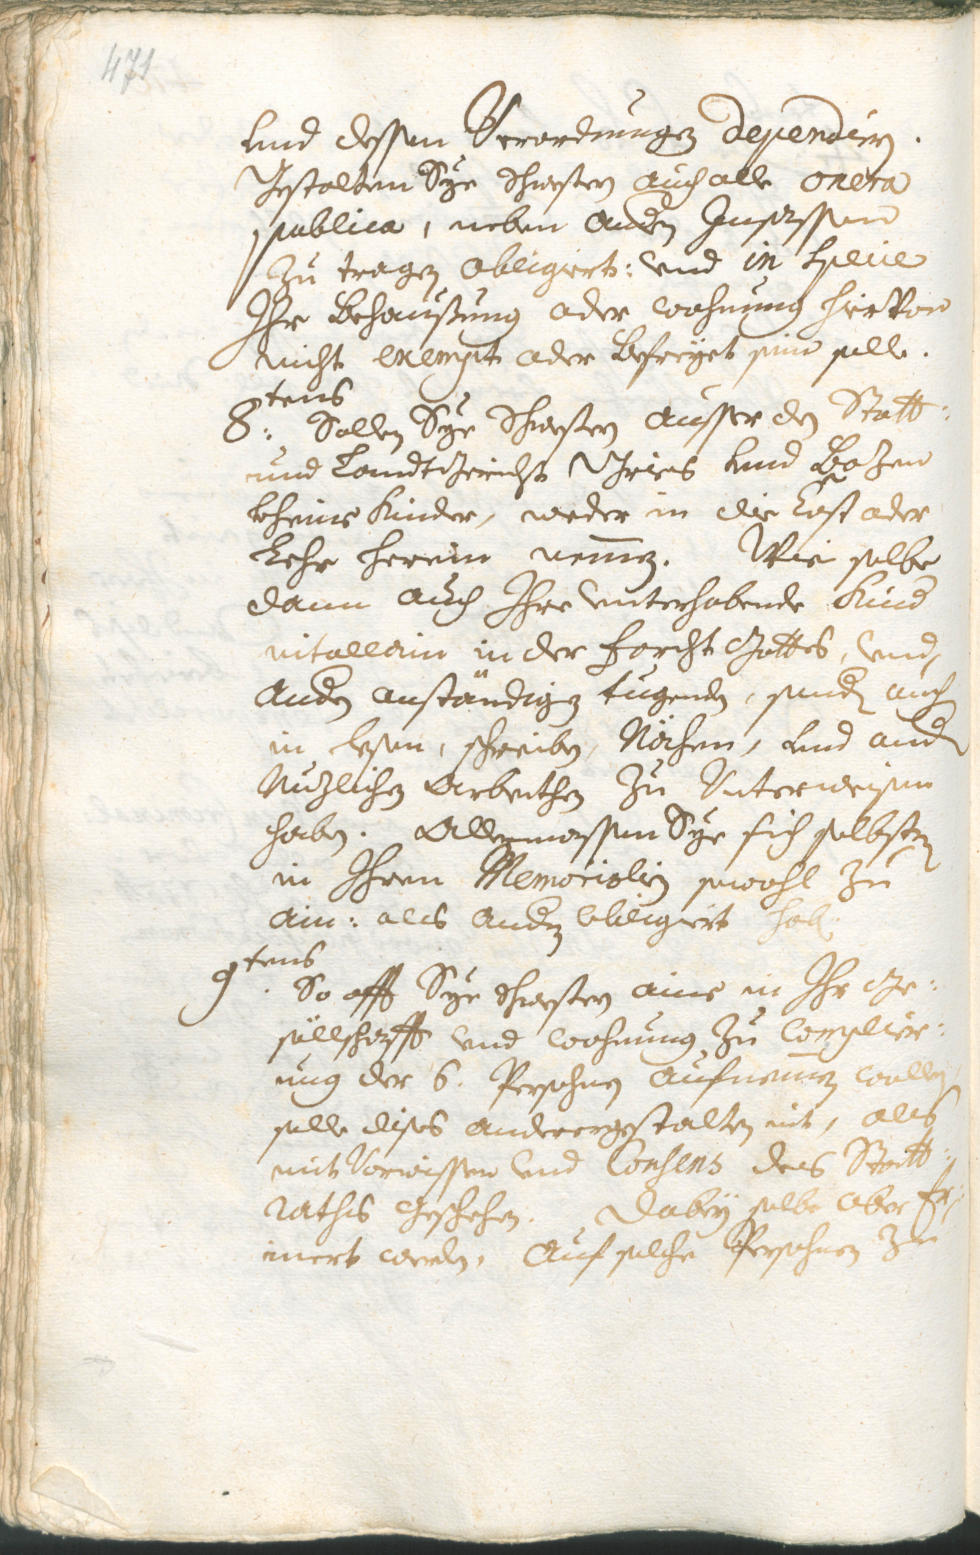 471
und dessen Verordnungen dependirn.
Gestalten Sye Schwestern auch alle onera
publica, neben andern Inzessen
zu tragen obligiert: und in specie
Ihr Behaußung oder wohnung hiervon
nicht exempt oder befreyet sein solle.
8tens: Sollen Sye Schwestern ausser den Statt:
und Landtgericht Gries und Bozen
kheine Kinder, weder in die Cost oder
Lehr herein nemen. Wie selbe
dann auch Ihre unterhabende Kind
nit allein in der forcht Gottes, und
andern anständigen tugenden, sondern auch
in lesen, schreiben, Nähen, und andern
Nuzlichen Arbeithen zu Unterweisen
haben. Allermassen Sye sich selbsten
in Ihren Memorialien sowohl zu
ain: als andern obligiert hab.
9tens. So offt Sye Schwestern aine in Ihr Ge:
söllschafft und wohnung zu Complier:
ung der 6. Persohnen aufnemen wollen
solle dises anderergestalten nit, als
mit Vorwissen und Consens des Statt:
raths geschehen. Dabey selbe aber er:
inert werden, auf solche Persohnen zu